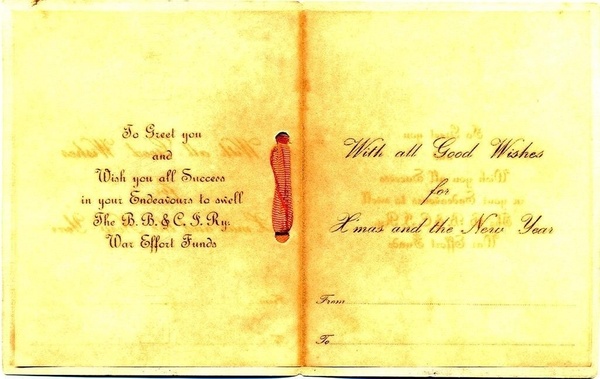 To Greet you
and
Wish you all Success
in your Endeavours to swell
The B. B. & C. I. Ry.
War Effort Funds
With all Good Wishes
for
X'mas and the New Year
From
To